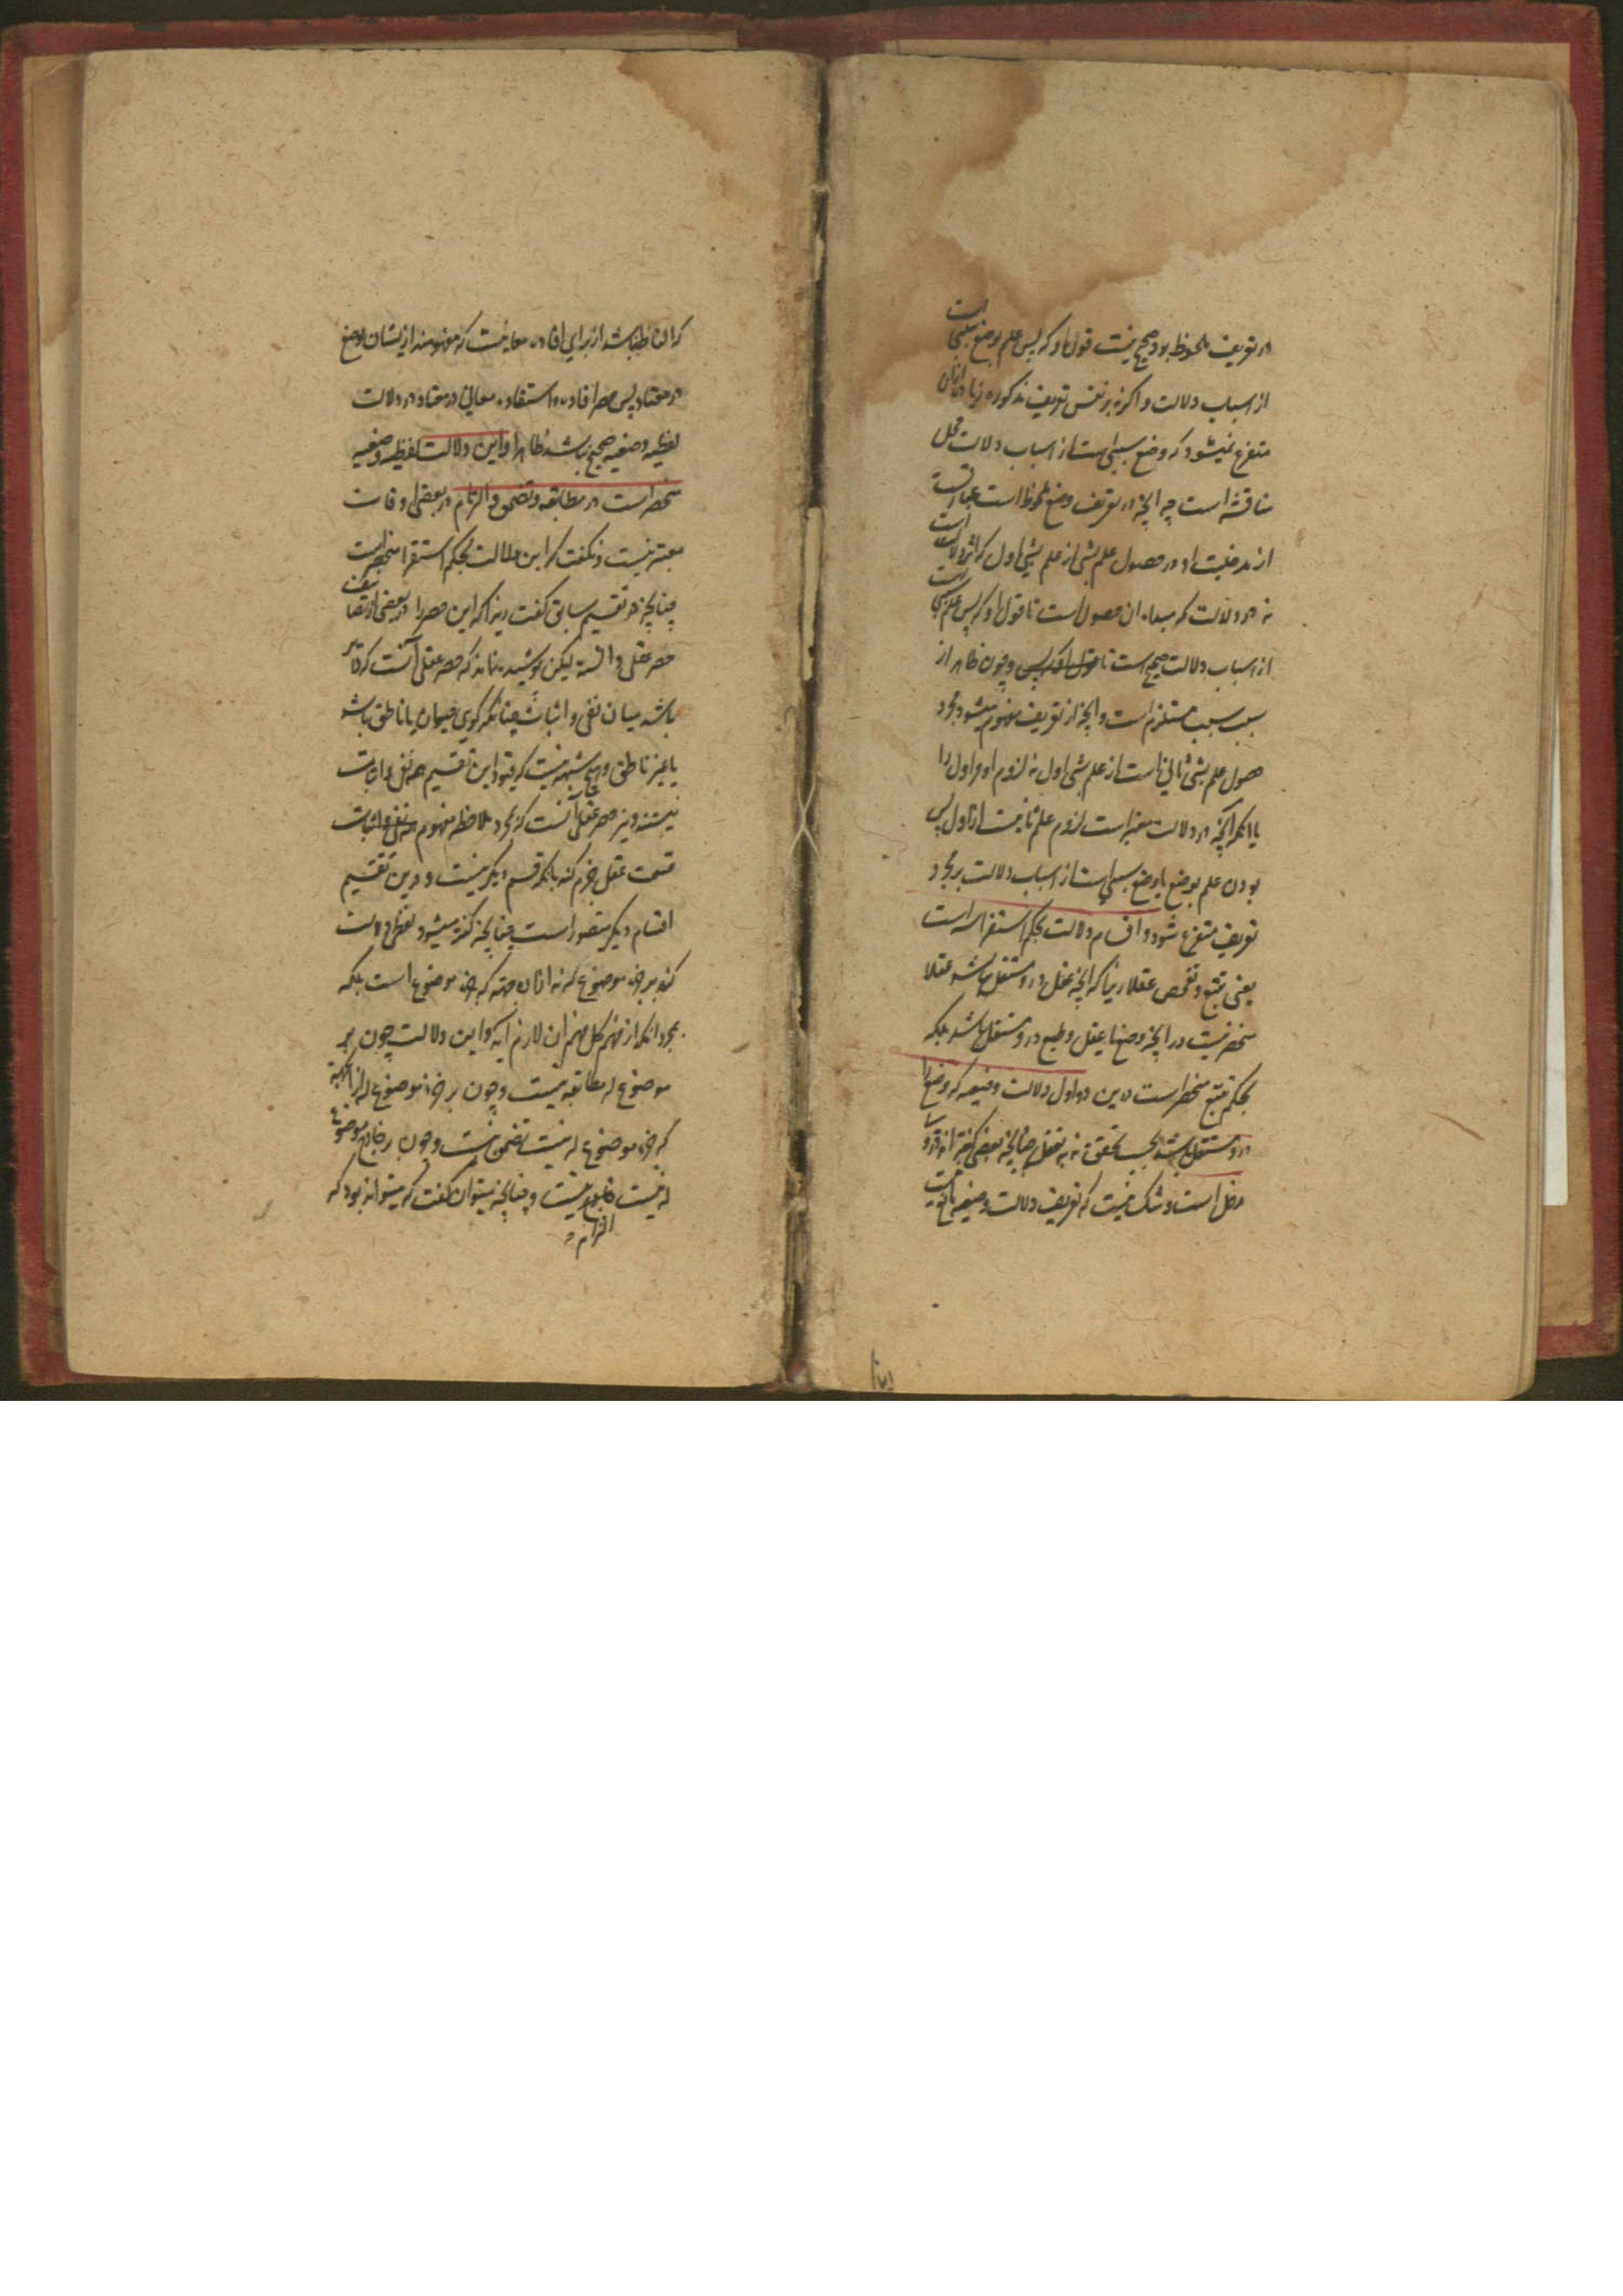 در تعریف ملحوظ بود صحیح نیست قول او که پس علم بوضع سببی است
از اسباب دلالت و اگر نه بر نفس تعریف مذکوره زیاده از ان
متفرع نمیشود که وضع سببی است از اسباب دلالت محل
مناقشه است چه انچه در تعریف وضع ملحوظ است عبارتست
از مدخلیت او در حصول علم بشی از علم بشی اول که اثر دلالت است
نه در دلالت که مبداء ان حصول است تا قول او که پس علم
از اسباب دلالت صحیح است تا قول او که پس و چون ظاهر از
سبب سبب مستلزم است و انچه از تعریف مفهوم میشود مجرد
حصول علم بشی ثانی است از علم بشی اول نه لزوم او مر اول را
با انکه انچه در دلالت معتبر است لزوم علم ثانیست از اول پس
بودن علم بوضع یا وضع سببی است از اسباب دلالت بر مجرد
تعریف متفرع نشود و اقسام دلالت بحکم استقرا سه است
یعنی تتبع و تفحص عقلا زیرا که انچه عقل درو مستقل نباشد عقلا
منحصر نیست در انچه وضع با عقل و طبع درو مستقل باشد بلکه
بحکم تتبع منحصر است درین دو اول دلالت وضعیه که وضع را
درو مستقل باشد بحسب تحقق نه به تعقل چنانچه بعضی گفته اند درو
مدخل است و شک نیست که تعریف دلالت وضعیه
رینا
که الفاظ باشد از برای افاده معانیست که مفهومند از یشان بوضع
در معتاد پس حصر افاده و استفاده معانی در معتاد در دلالت
لفظیه وضعیه صحیح نباشد ظاهرا و این دلالت لفظیه وضعیه
منحصر است در مطابقه و تضمن و التزام در بعضی اوقات
معتبر نیست و نگفت که این دلالت بحکم استقرا منحصر است
چنانچه در تقسیم سابق گفت زیرا که این حصر را در بعضی از تصانیف
حصر عقلی دانسته لیکن پوشیده نماند که حصر عقلی آنست که دایر
باشد میان نفی و اثبات چنانکه گویی حیوان یا ناطق باشد
یا غیر ناطق و هیچ شبهه نیست که قیود این تقسیم همه نفی و اثبات
نیستند و نیز حصر عقلی آنست که بمجرد ملاحظه مفهوم نفی و اثبات
قسمت عقل جزم کند بانکه قسم دیگر نیست و درین تقسیم
اقسام دیگر متصور است چنانچه گفته میشود لفظی دلالت
کند بر جزء موضوع له نه ازان جهته که جزء موضوع است بلکه
بمجرد انکه از فهم کل فهم ان لازم آید و این دلالت چون بر
موضوع له مطابقه نیست و چون بر جزء موضوع له از انجهته
که جزء موضوع له نیست تضمن نیست و چون بر خارج موضوع
له نیست التزام نیست و چنانچه میتوان گفت که میتواند بود که